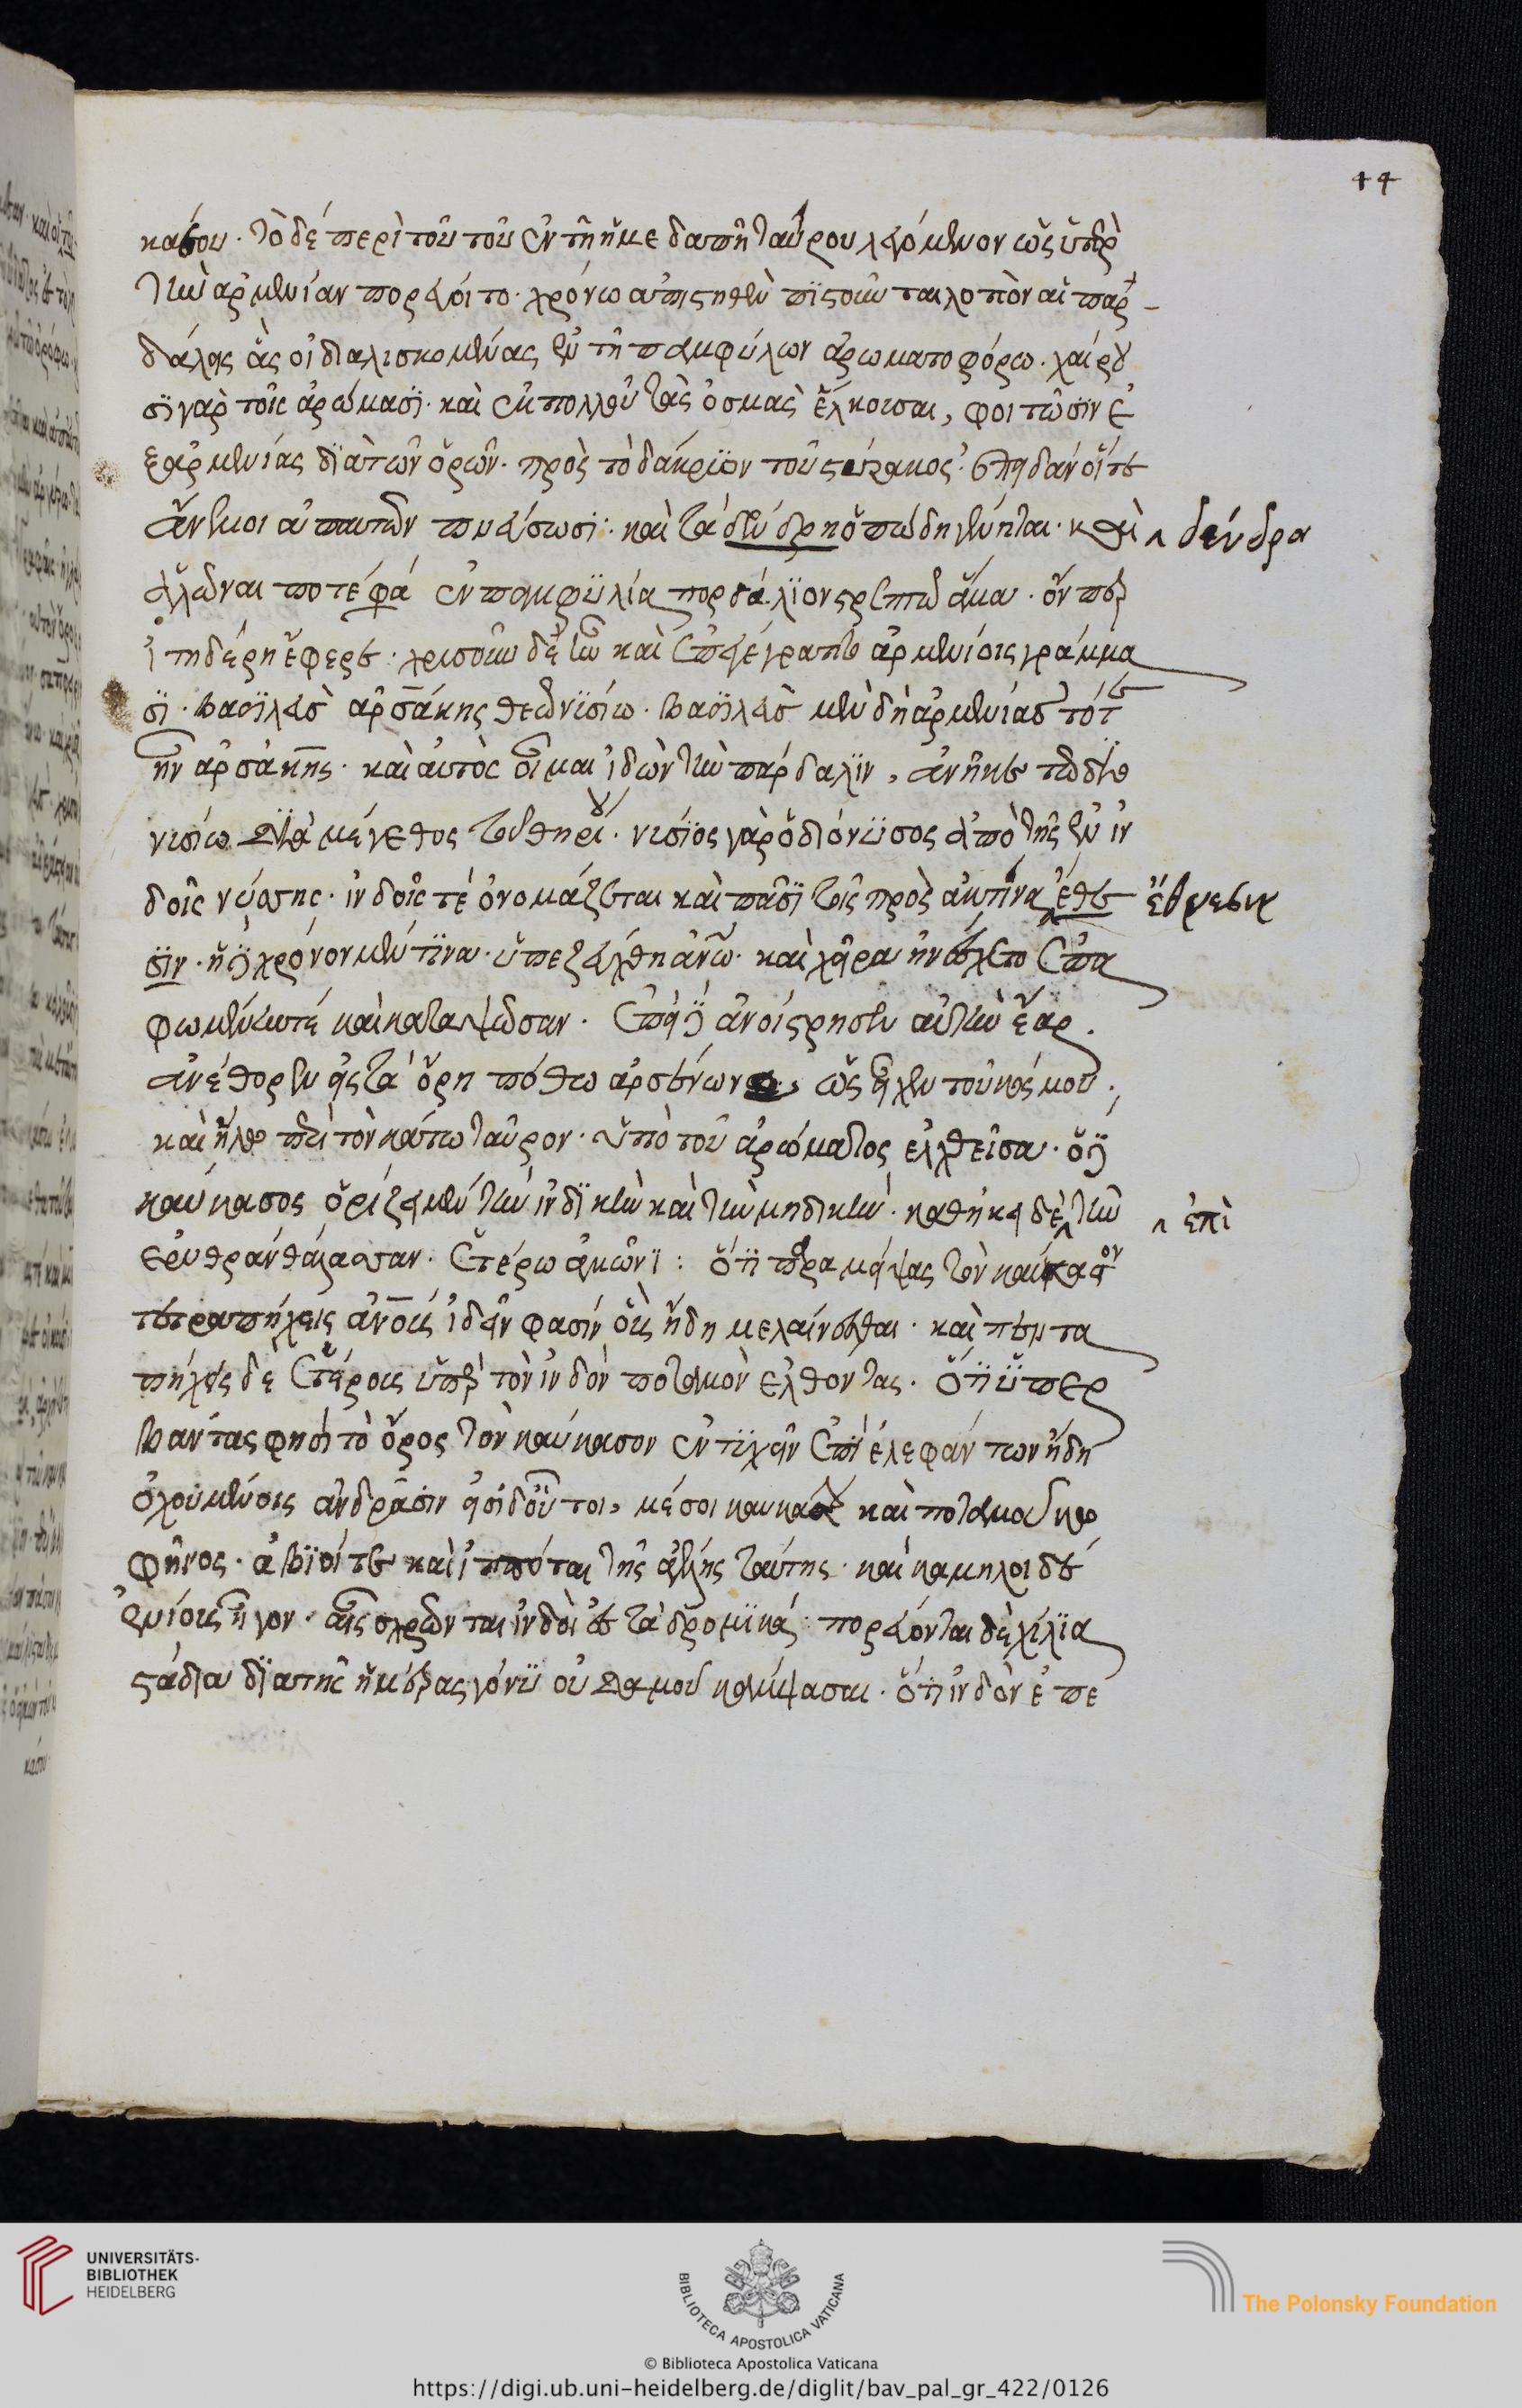 44
κάσου. τὸ δὲ περὶ τούτου ἐν τῇ ἡμεδαπῇ ταύρου λεγόμενον ὡς ὑπὲρ
τὴν ἀρμενίαν πορεύοιτο. χρόνω ἀπιστηθὲν πιστοῦνται λοπὸν αἱ παρ-
δάλεις ἃς οἶδα ἁλισκομένας ἐν τῇ παμφύλων ἀρωματοφόρω. χαίρου
σι γὰρ τοῖς ἀρώμασι. καὶ ἐκ πολλοῦ τὰς ὀσμὰς ἕλκουσαι, φοιτῶσιν ἐ
ξ ἀρμενίας διὰ τῶν ὀρῶν. πρὸς τὸ δάκρυον τοῦ στύρακος. ἐπειδὰν οἵτε
ἄνεμοι ἀπ' αὐτῶν πνεύσωσι. καὶ τὰ δένδρη ὀπώδη γένηται. καὶ ^ δένδρα
ἁλῶναι ποτέ φα ἐν παμφυλία πορδάλιον στρεπτῶ ἅμα. ὃν περ
ὶ τῇ δέρῃ ἔφερε. χρυσοῦν δὲ ἦν καὶ ἐπεγέγραπτο ἀρμενίοις γράμμα
σι. βασιλεὺς ἀρσάκης θεῶ νισίω. βασιλεὺς μὲν δὴ ἀρμενίας τότε
ἦν ἀρσάκης. καὶ αὐτὸς οἶμαι ἰδὼν τὴν πάρδαλιν, ἀνῆκε τῶ διο
νυσίω διὰ μέγεθος τοῦ θηρίου. νύσιος γὰρ ὁ διόνυσος ἀπὸ τῆς ἐν ἰν
δοῖς νύσσης. ἰνδοῖς τὲ ὀνομάζεται καὶ πᾶσι τοῖς πρὸς ἀκτῖνα ἔθε ἔθνεσιν
σιν. ἡ δὲ χρόνον μέν τινα. ὑπεζεύχθη ἀνῶ. καὶ χεῖρα ἠνέσχετο ἐπα
φωμένην τὲ καὶ καταψῶσαν. ἐπεὶ δὲ ἀνοίστρησεν αὐτὴν ἔαρ.
ἀνέθορεν εἰς τὰ ὄρη πόθω ἀρσένων, ὡς εἶχεν τοῦ κόσμου,
καὶ ἥλω περὶ τὸν κάτω ταῦρον. ὑπὸ τοῦ ἀρώματος ἑλχθεῖσα. ὁ δὲ
καύκασος ὁρίζει μὲν τὴν ἰνδικὴν καὶ τὴν μηδικήν. καθήκει δὲ ^ τὴν ^ ἐπὶ
ἐρυθρὰν θάλασσαν. ἑτέρω ἀγκῶνι: ὅτι παραμείψας τὸν καύκασον
τετραπήχεις ἀνους ἰδεῖν φασὶν οὓς ἤδη μελαίνεσθαι. καὶ πεντα
πήχεις δὲ ἑτέρους ὑπὲρ τὸν ἰνδὸν ποταμὸν ἐλθόντας. ὅτι ὑπερ
βάντας φησὶ τὸ ὄρος τὸν καύκασον ἐντυχεῖν ἐπὶ ἐλεφάντων ἤδη
ὀχουμένοις ἀνδράσιν εἰσὶ δ' οὗτοι, μέσοι καυκάσου καὶ ποταμοῦ κω
φῆνος. ἄβιοί τε καὶ ἱππόται τῆς ἀγέλης ταύτης. καὶ κάμηλοι δὲ
ἐνίους ἦγον. αἷς χρῶνται ἰνδοὶ ἐς τὰ δρομικά. πορεύονται δὲ χίλια
στάδια διὰ τῆς ἡμέρας γόνυ οὐδαμοῦ κάμψασαι. ὅτι ἰνδὸν ἐπε
UNIVERSITÄTS-
BIBLIOTHEK
HEIDELBERG
BIBLIOTECA APOSTOLICA VATICANA
The Polonsky Foundation
© Biblioteca Apostolica Vaticana
https://digi.ub.uni-heidelberg.de/diglit/bav_pal_gr_422/0126